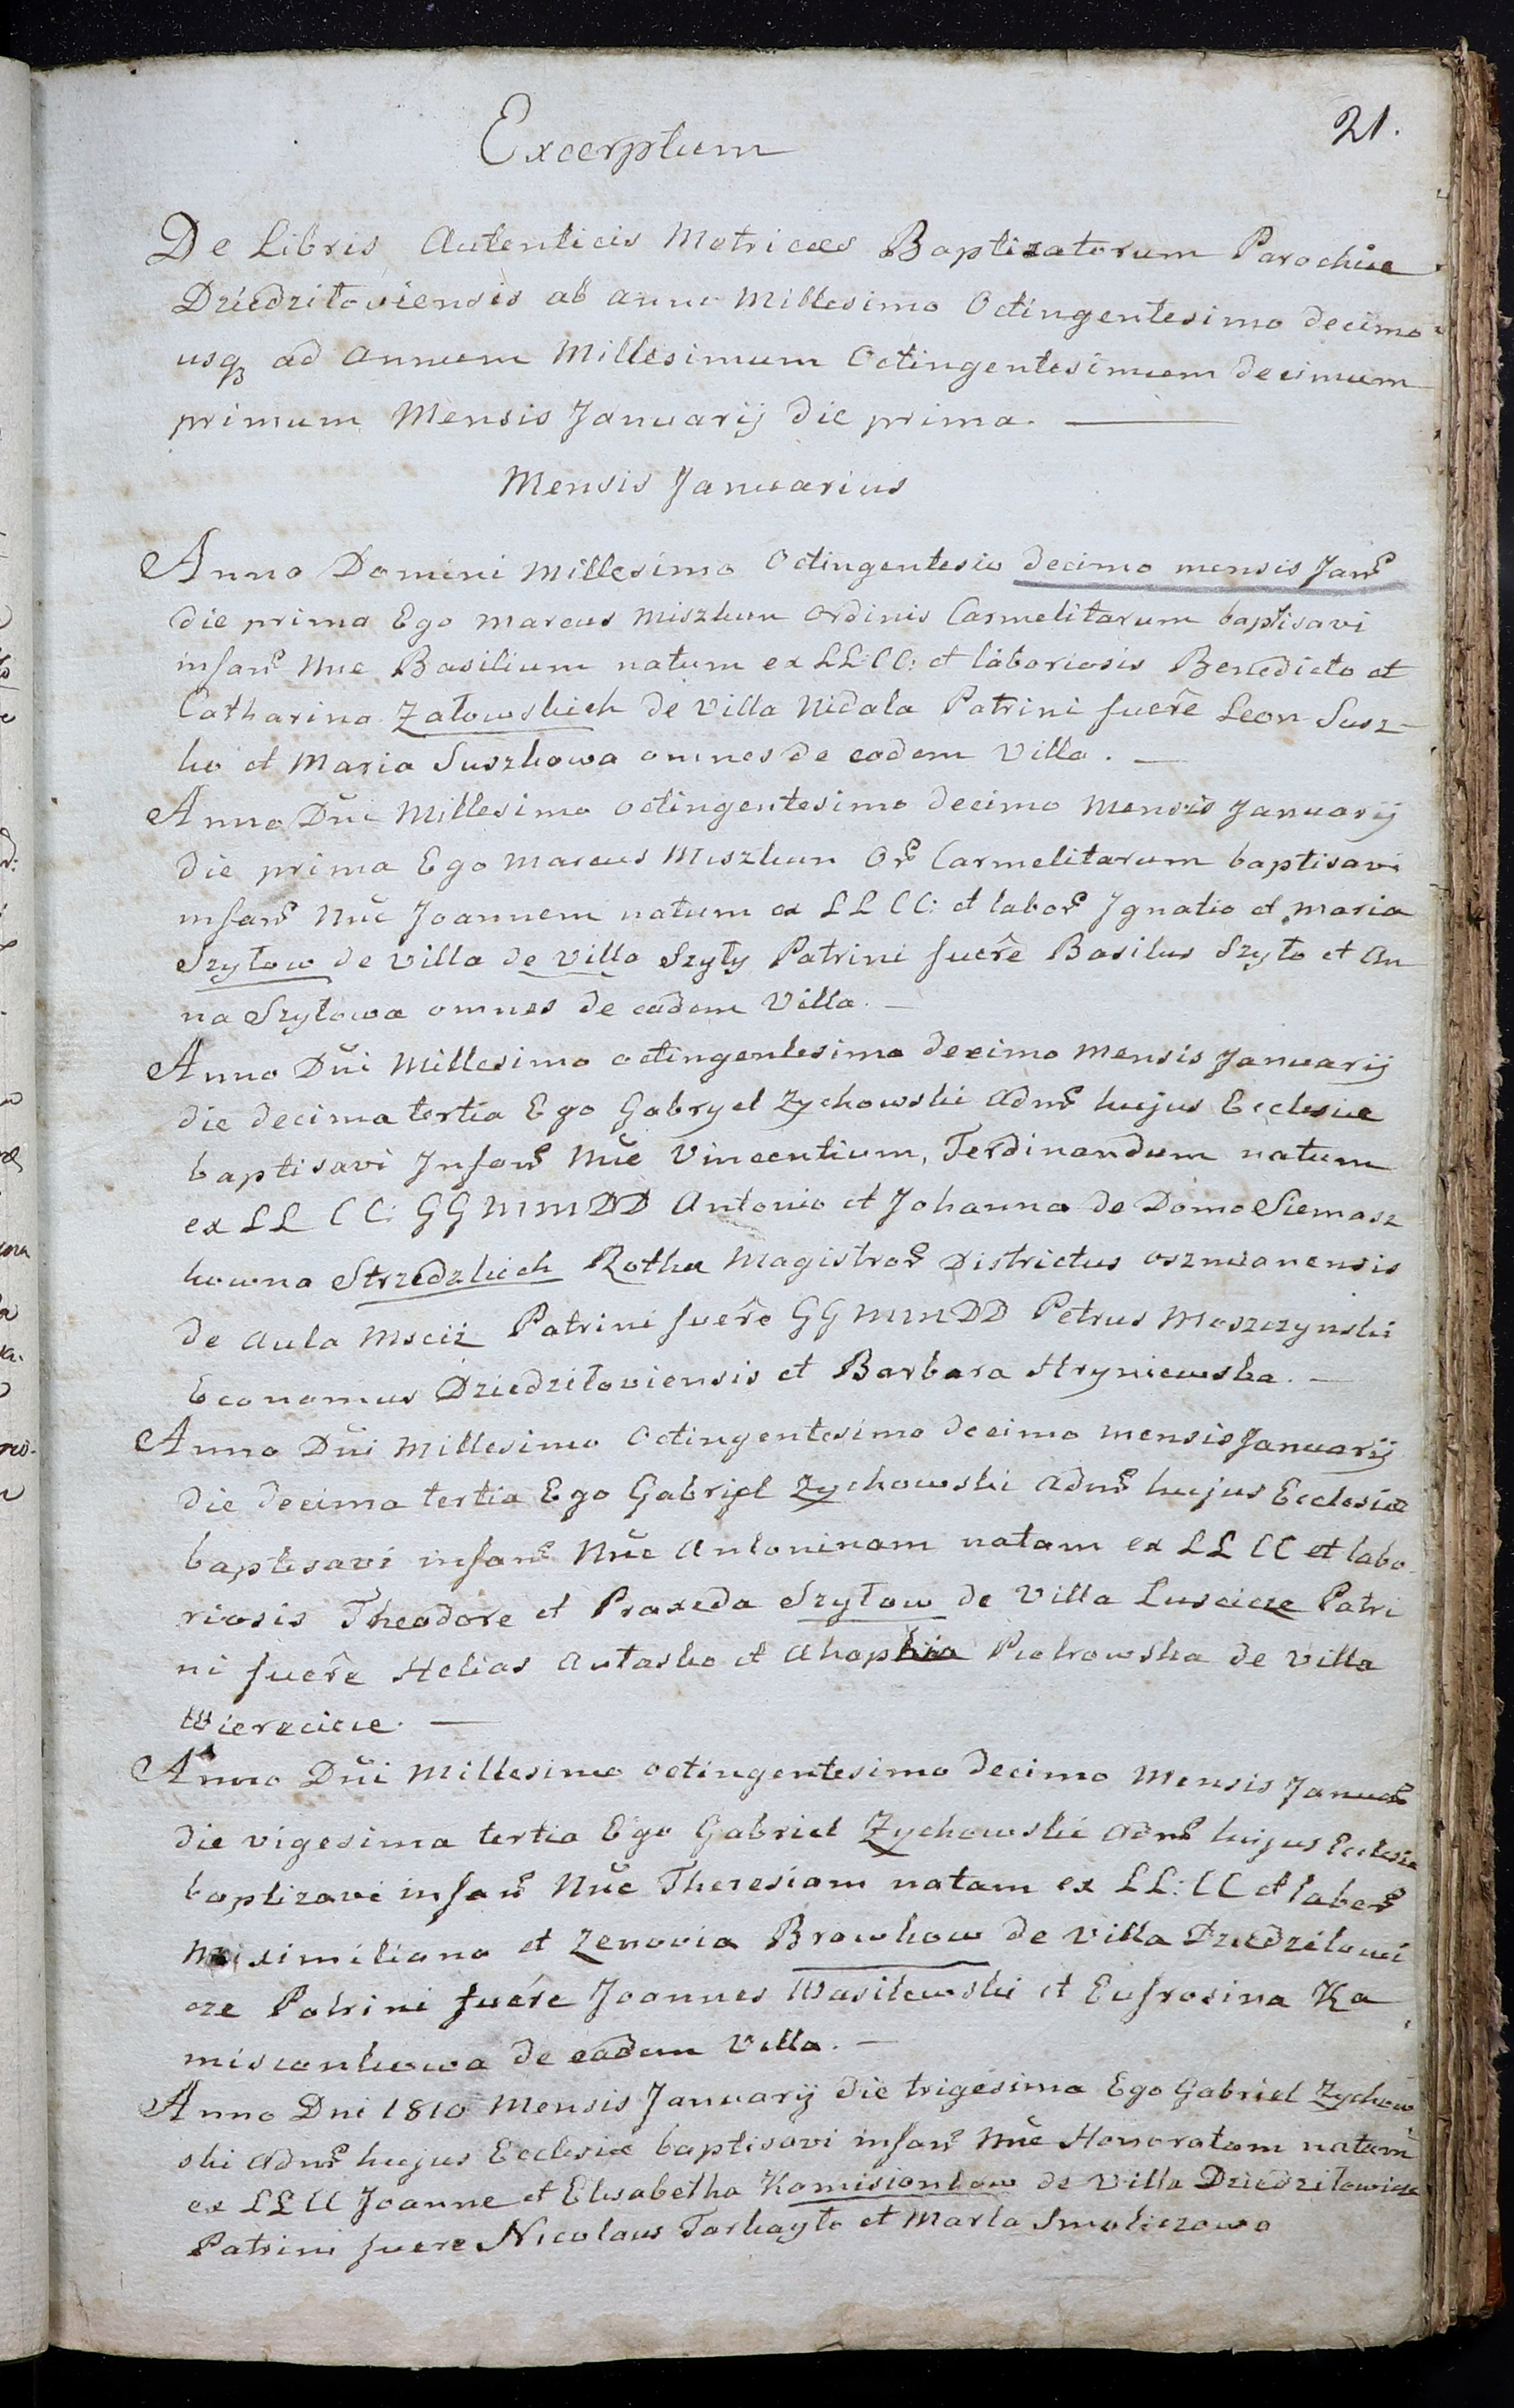 21.
Excerptum
De Libris Autenticis Metrices Baptizatorum Parochiæ
Dziedzitoviensis ab anno Millesimo Octingentesimo decimo
usq, ad Annum Millesimum Octingentesimum decimum
primum Mensis Januarij die prima. —
Mensis Januarius
Anno Domini Millesimo Octingentesio decimo mensis Janr̃
die prima Ego Marcus Miszkun Ordinis Carmelitarum baptisavi
infan̄ Nne Basilium natum ex LL: CC: et laboriosis Benedicto et
Catharina Załowskich de Villa Nidala Patrini fuere Leon Susz-
ko et Maria Suszkowa omnes de eadem Villa. —
Anno Dn̄i Millesimo octingentesimo decimo Mensis Januarij
die prima Ego Marcus Miszkun Or̃ Carmelitarum baptisavi
infan̄ Nn̄e Joannem natum ex LL CC: et labor̃ Ignatio et Maria
Szyłow de Villa de Villa Szyły Patrini fuere Basilus Szyło et An
na Szyłowa omnes de eadem Villa. —
Anno Dn̄i Millesimo octingentesimo decimo mensis Januarij
die decima tertia Ego Gabryel Zychowski Adm̄r hujus Ecclesiæ
baptisavi Infan̄ Nn̄e Vincentium, Ferdinandum natum
ex LL CC: GG MM DD Antonio et Johanna de Domo Siemasz
kowna Strzedzkich Rothm Magistror̃ Districtus oszmianensis
de Aula Msciż Patrini fuere GG MM DD Petrus Moszczynski
Economus Dziedziłoviensis et Barbara Hryniewska. —
Anno Dn̄i Millesimo Octingentesimo decimo mensis Januarij
die decima tertia Ego Gabriel Zychowski Adm̄r hujus Ecclesiæ
baptisavi infan̄ Nn̄e Antoninam natam ex LL CC et labo
riosis Theodore et Praxeda Szyłow de Villa Luscicze Patri
ni fuere Helias Autasko et Ahaphia Piotrowska de Villa
Wierzcicie. —
Anno Dn̄i Millesimo octingentesimo decimo Mensis Januar̃
die vigesima tertia Ego Gabriel Zychowski Adm̄r hujus Ecclesiæ
baptizavi infan̄ Nn̄e Theresiam natam ex LL: CC et labor̃
Maximiliano et Zenovia Browkow de Villa Dziedziłowi
cze Patrini fuere Joannes Wasilewski et Eufrosina Ka
misionkowa de eadem Villa. —
Anno Dni 1810 Mensis Januarij die trigesima Ego Gabriel Zychow
ski Adm̄r hujus Ecclesiæ baptisavi infan̄ Nn̄e Honoratam natam
ex LL CC Joanne et Elisabetha Komisionkow de Villa Dziedziłowicze
Patrini fuere Nicolaus Tarkayło et Marla Smoliczowa